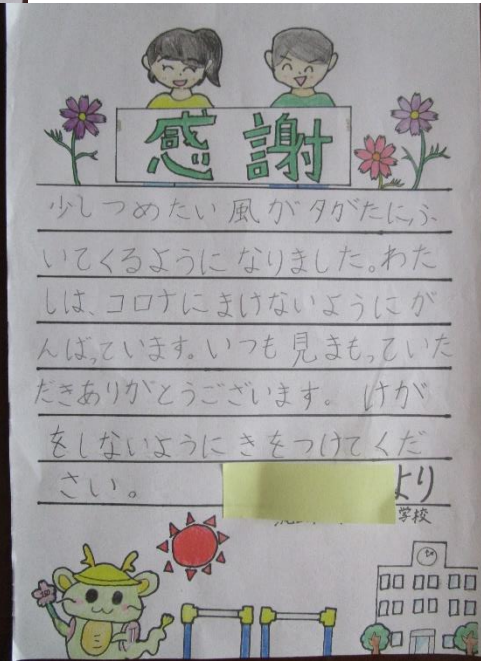 感謝
少しつめたい風が夕がたに、ふ
いてくるようになりました。わた
しは、コロナにまけないようにが
んばっています。いつも見まもっていた
だきありがとうございます。けが
をしないようにきをつけてくだ
さい。
より
学校